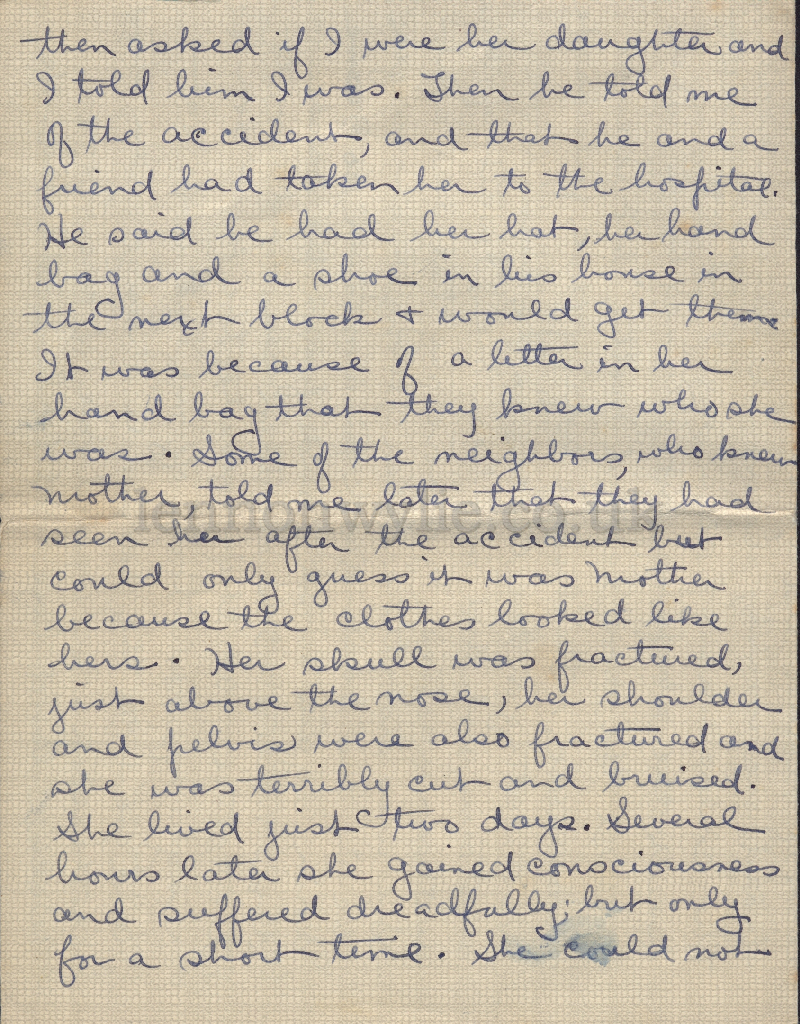 then asked if I were her daughter and
I told him I was. Then he told me
of the accident, and that he and a
friend had taken her to the hospital.
He said he had her hat, her hand
bag and a shoe in his house in
the next block & would get them
It was because of a letter in her
hand bag that they knew who she
was. Some of the neighbors, who knew
mother, told me later that they had
lennonwylie.co.uk
seen her after the accident but
could only guess it was Mother
because the clothes looked like
hers. Her skull was fractured,
just above the nose, her shoulder
and pelvis were also fractured and
she was terribly cut and bruised.
She lived just two days. Several
hours later she gained consciousness
and suffered dreadfully; but only
for a short time. She could not